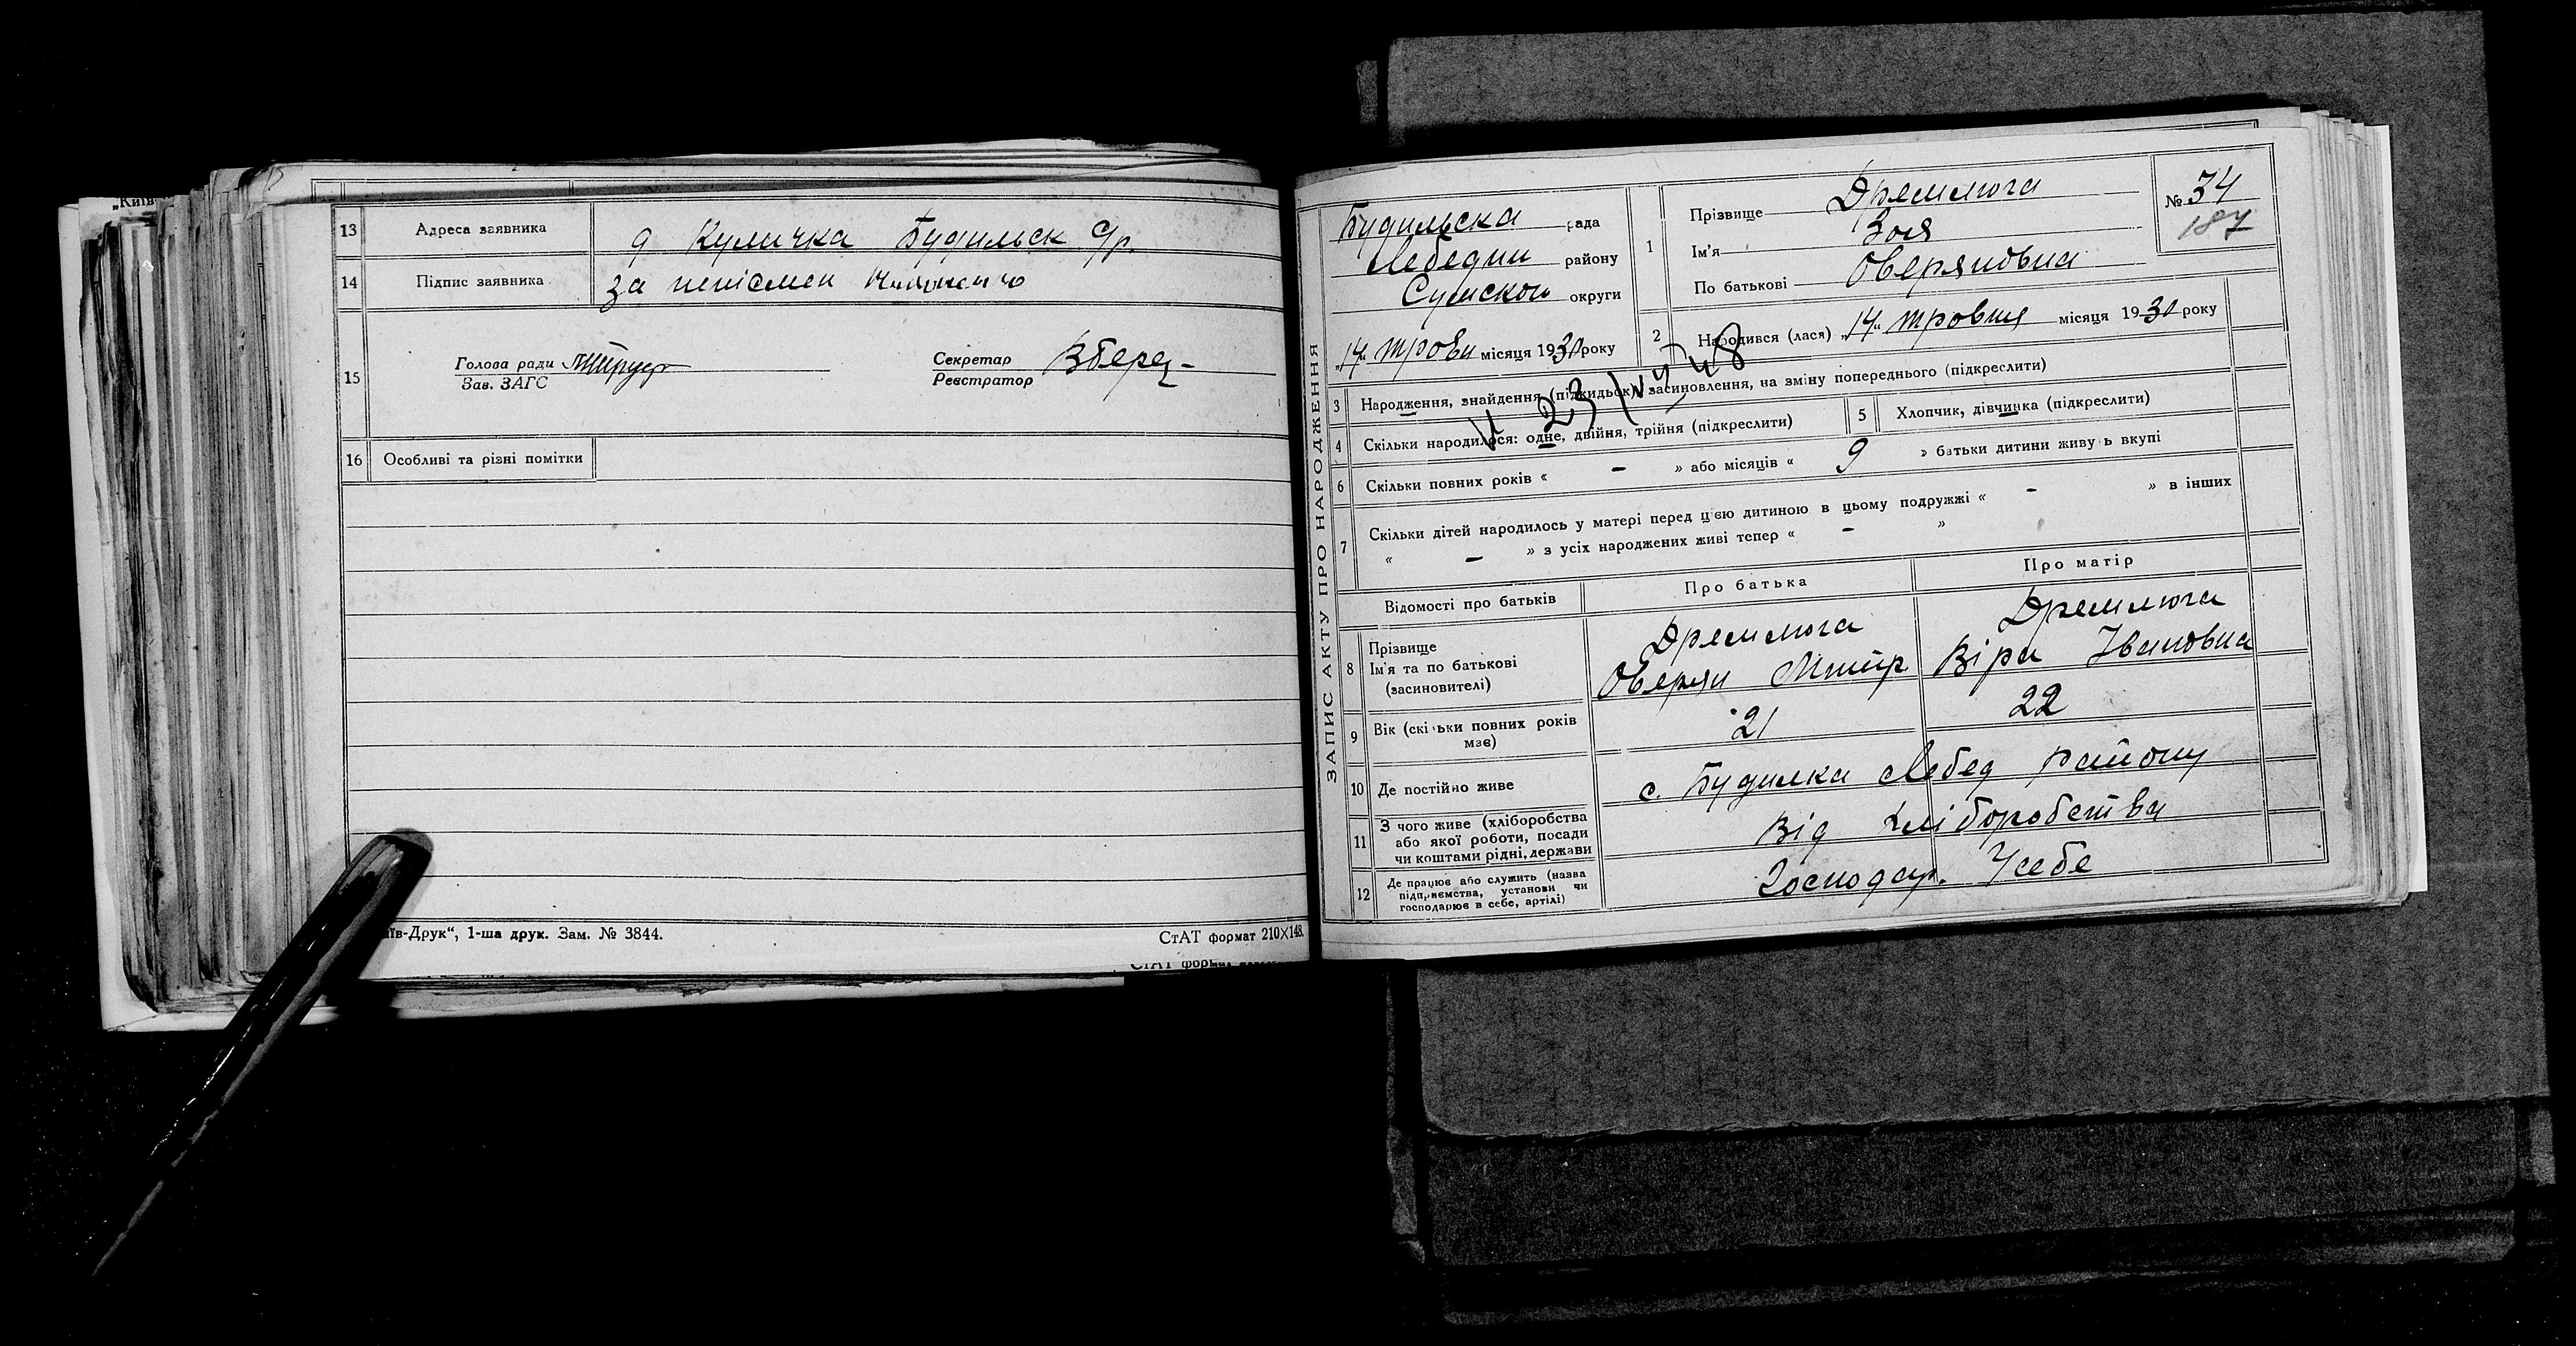 „Київ-
13 Адреса заявника д Куличка Будильск С/р.
14 Підпис заявника за неписмен
15 Голова ради Зав. ЗАГС Секретар Реєстратор ВБерез-
16 Особливі та різні помітки
їв-Друк“, 1-ша друк. Зам. № 3844. СтАТ формат 210×148.
СтАТ форм
ЗАПИС АКТУ ПРО НАРОДЖЕННЯ
Будильска рада
Лебедин району
Сумскои округи
„14“ Тровн місяця 1930 року
1 Прізвище Дремлюга
Ім'я Зоя
По батькові Оверяновна
№ 34
187
2 Народився (лася) „14“ тровня місяця 1930 року
3 Народження, знайдення (підкидьок), засиновлення, на зміну попереднього (підкреслити)
4 Скільки народилося: одне, двійня, трійня (підкреслити) 5 Хлопчик, дівчинка (підкреслити)
6 Скільки повних років « - » або місяців « 9 » батьки дитини живуть вкупі
7 Скільки дітей народилось у матері перед цією дитиною в цьому подружжі « - » в інших
« - » з усіх народжених живі тепер « - »
Відомості про батьків Про батька Про матір
8 Прізвище Дремлюга Дремлюга
Ім'я та по батькові Оверян Митр Віра Івановна
(засиновителі)
9 Вік (скільки повних років має) 21 22
10 Де постійно живе с. Будилка Лебед району
11 З чого живе (хліборобства
або якої роботи, посади
чи коштами рідні, держави Від хліборобства
12 Де працює або служить (назва
підприємства, установи чи
господарює в себе, артілі) Господар. Усебе